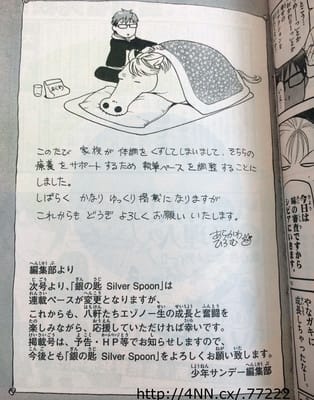 このたび 家族が 体調を くずしてしまいまして、そちらの
療養をサポートするため 執筆ペースを調整することに
しました。
しばらく かなり ゆっくり掲載になりますが
これからも どうぞ よろしく お願い いたします。
あらかわ
ひろむ
編集部より
次号より、「銀の匙 Silver Spoon」は
連載ペースが変更となりますが、
これからも、八軒たちエゾノー生の成長と奮闘を
楽しみながら、応援していただければ幸いです。
掲載号は、予告・HP等でお知らせしますので、
今後とも「銀の匙 Silver Spoon」をよろしくお願い致します。
少年サンデー編集部
今日は
ですから
やなガキに
成長し
ちゃったな…!
http://4NN.cx/.77222